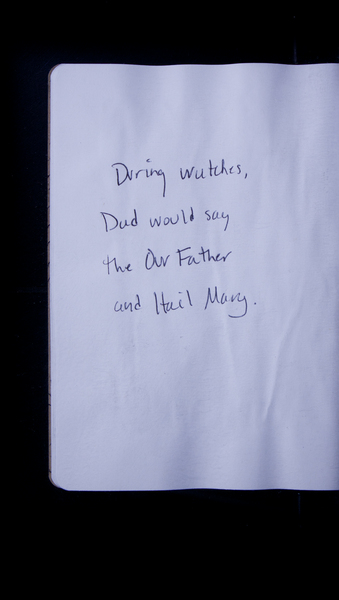 During watches,
Dad would say
the Our Father
and Hail Mary.